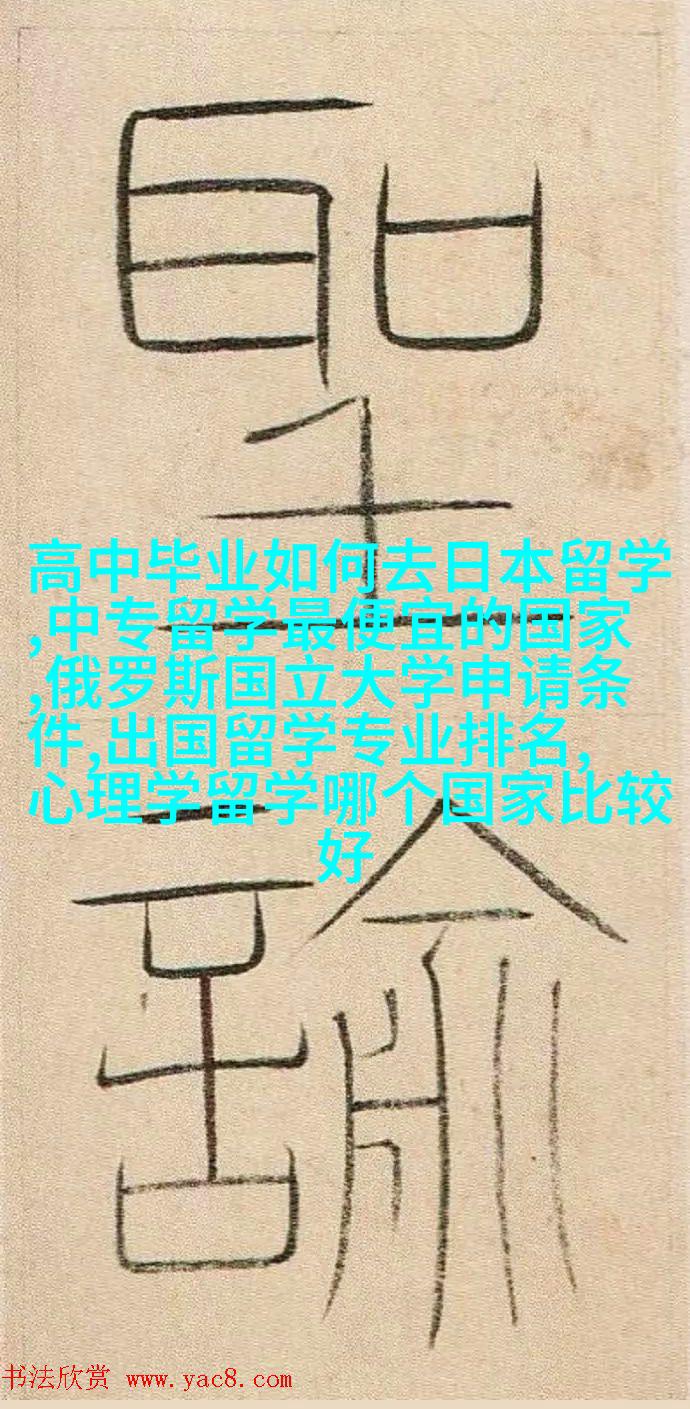 聖
諭
高中毕业如何去日本留学
,中专留学最便宜的国家
,俄罗斯国立大学申请条
件,出国留学专业排名,
心理学留学哪个国家比较
好
书法欣赏 www.yac8.com